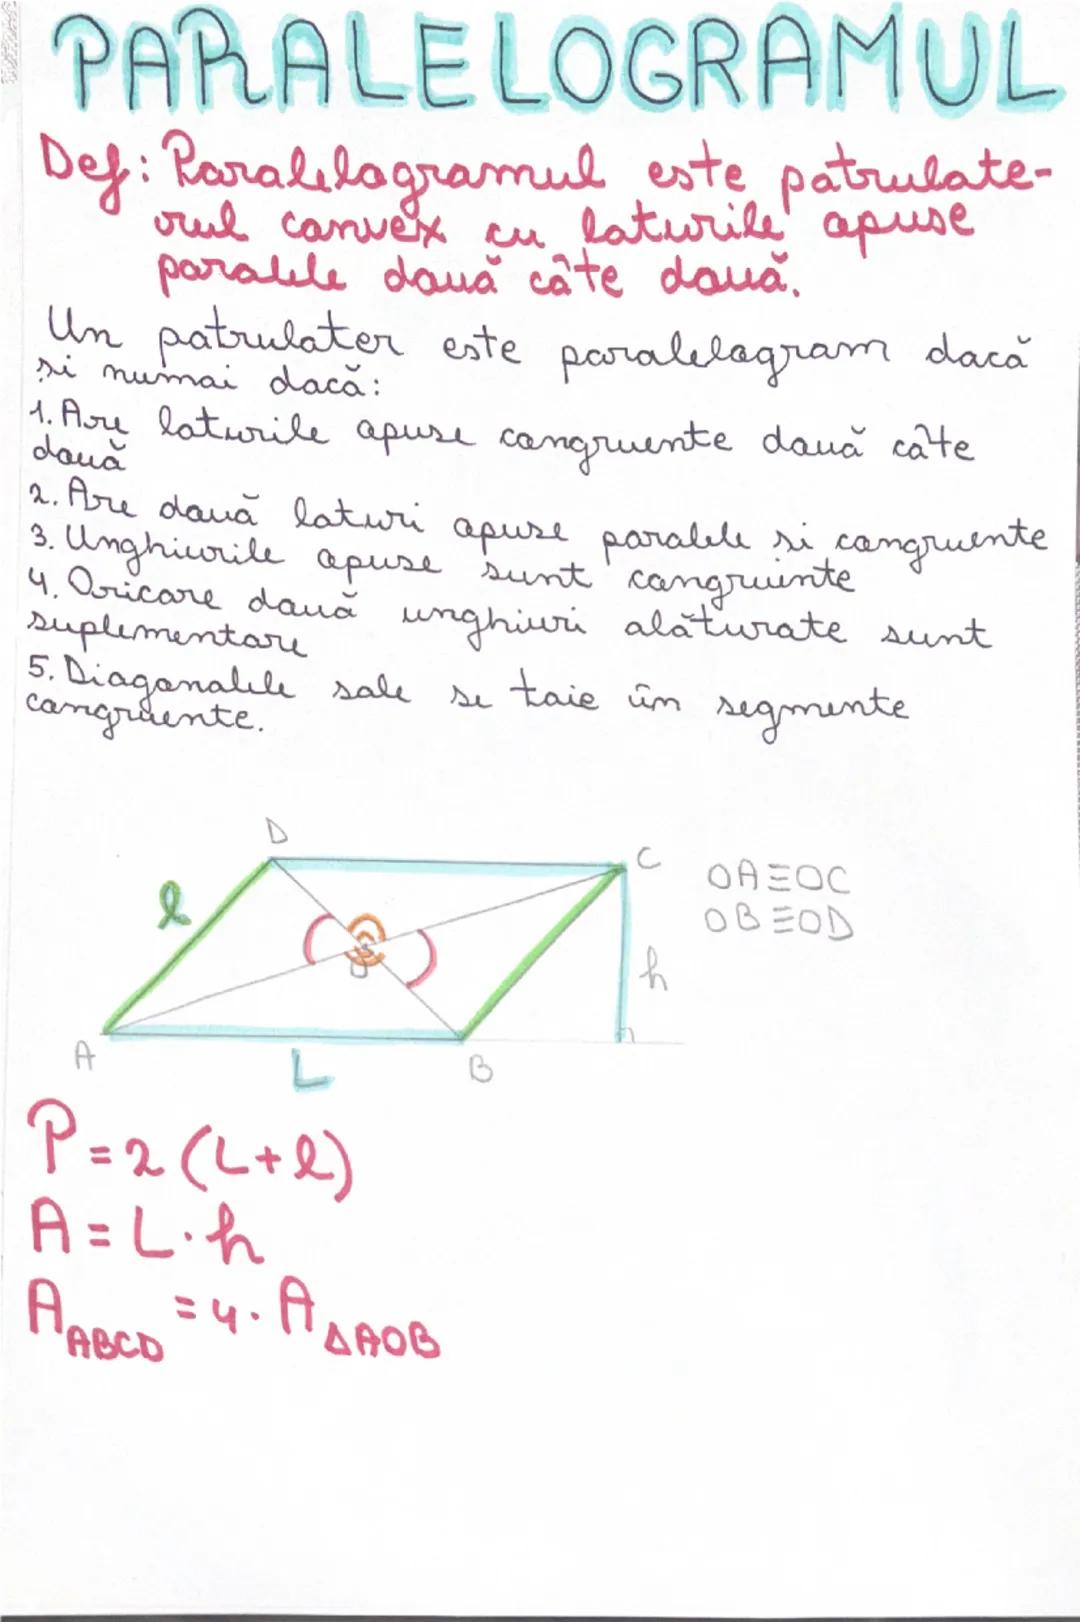 PARALELOGRAMUL
Def: Paralelogramul este patrulate-
rul convex cu laturile opuse
paralele două câte două.
Un patrulater este paralelogram dacă
si numai dacă:
1. Are laturile opuse congruente două câte
două
2. Are două laturi opuse paralele si congruente
3. Unghiurile opuse sunt congruente
4. Oricare două unghiuri alăturate sunt
suplementare
5. Diagonalele sale se taie în segmente
congruente.
D
C
l
OA≡OC
OB≡OD
O
h
A
L
B
P=2(L+l)
A=L·h
A ABCD =4·A ΔAOB